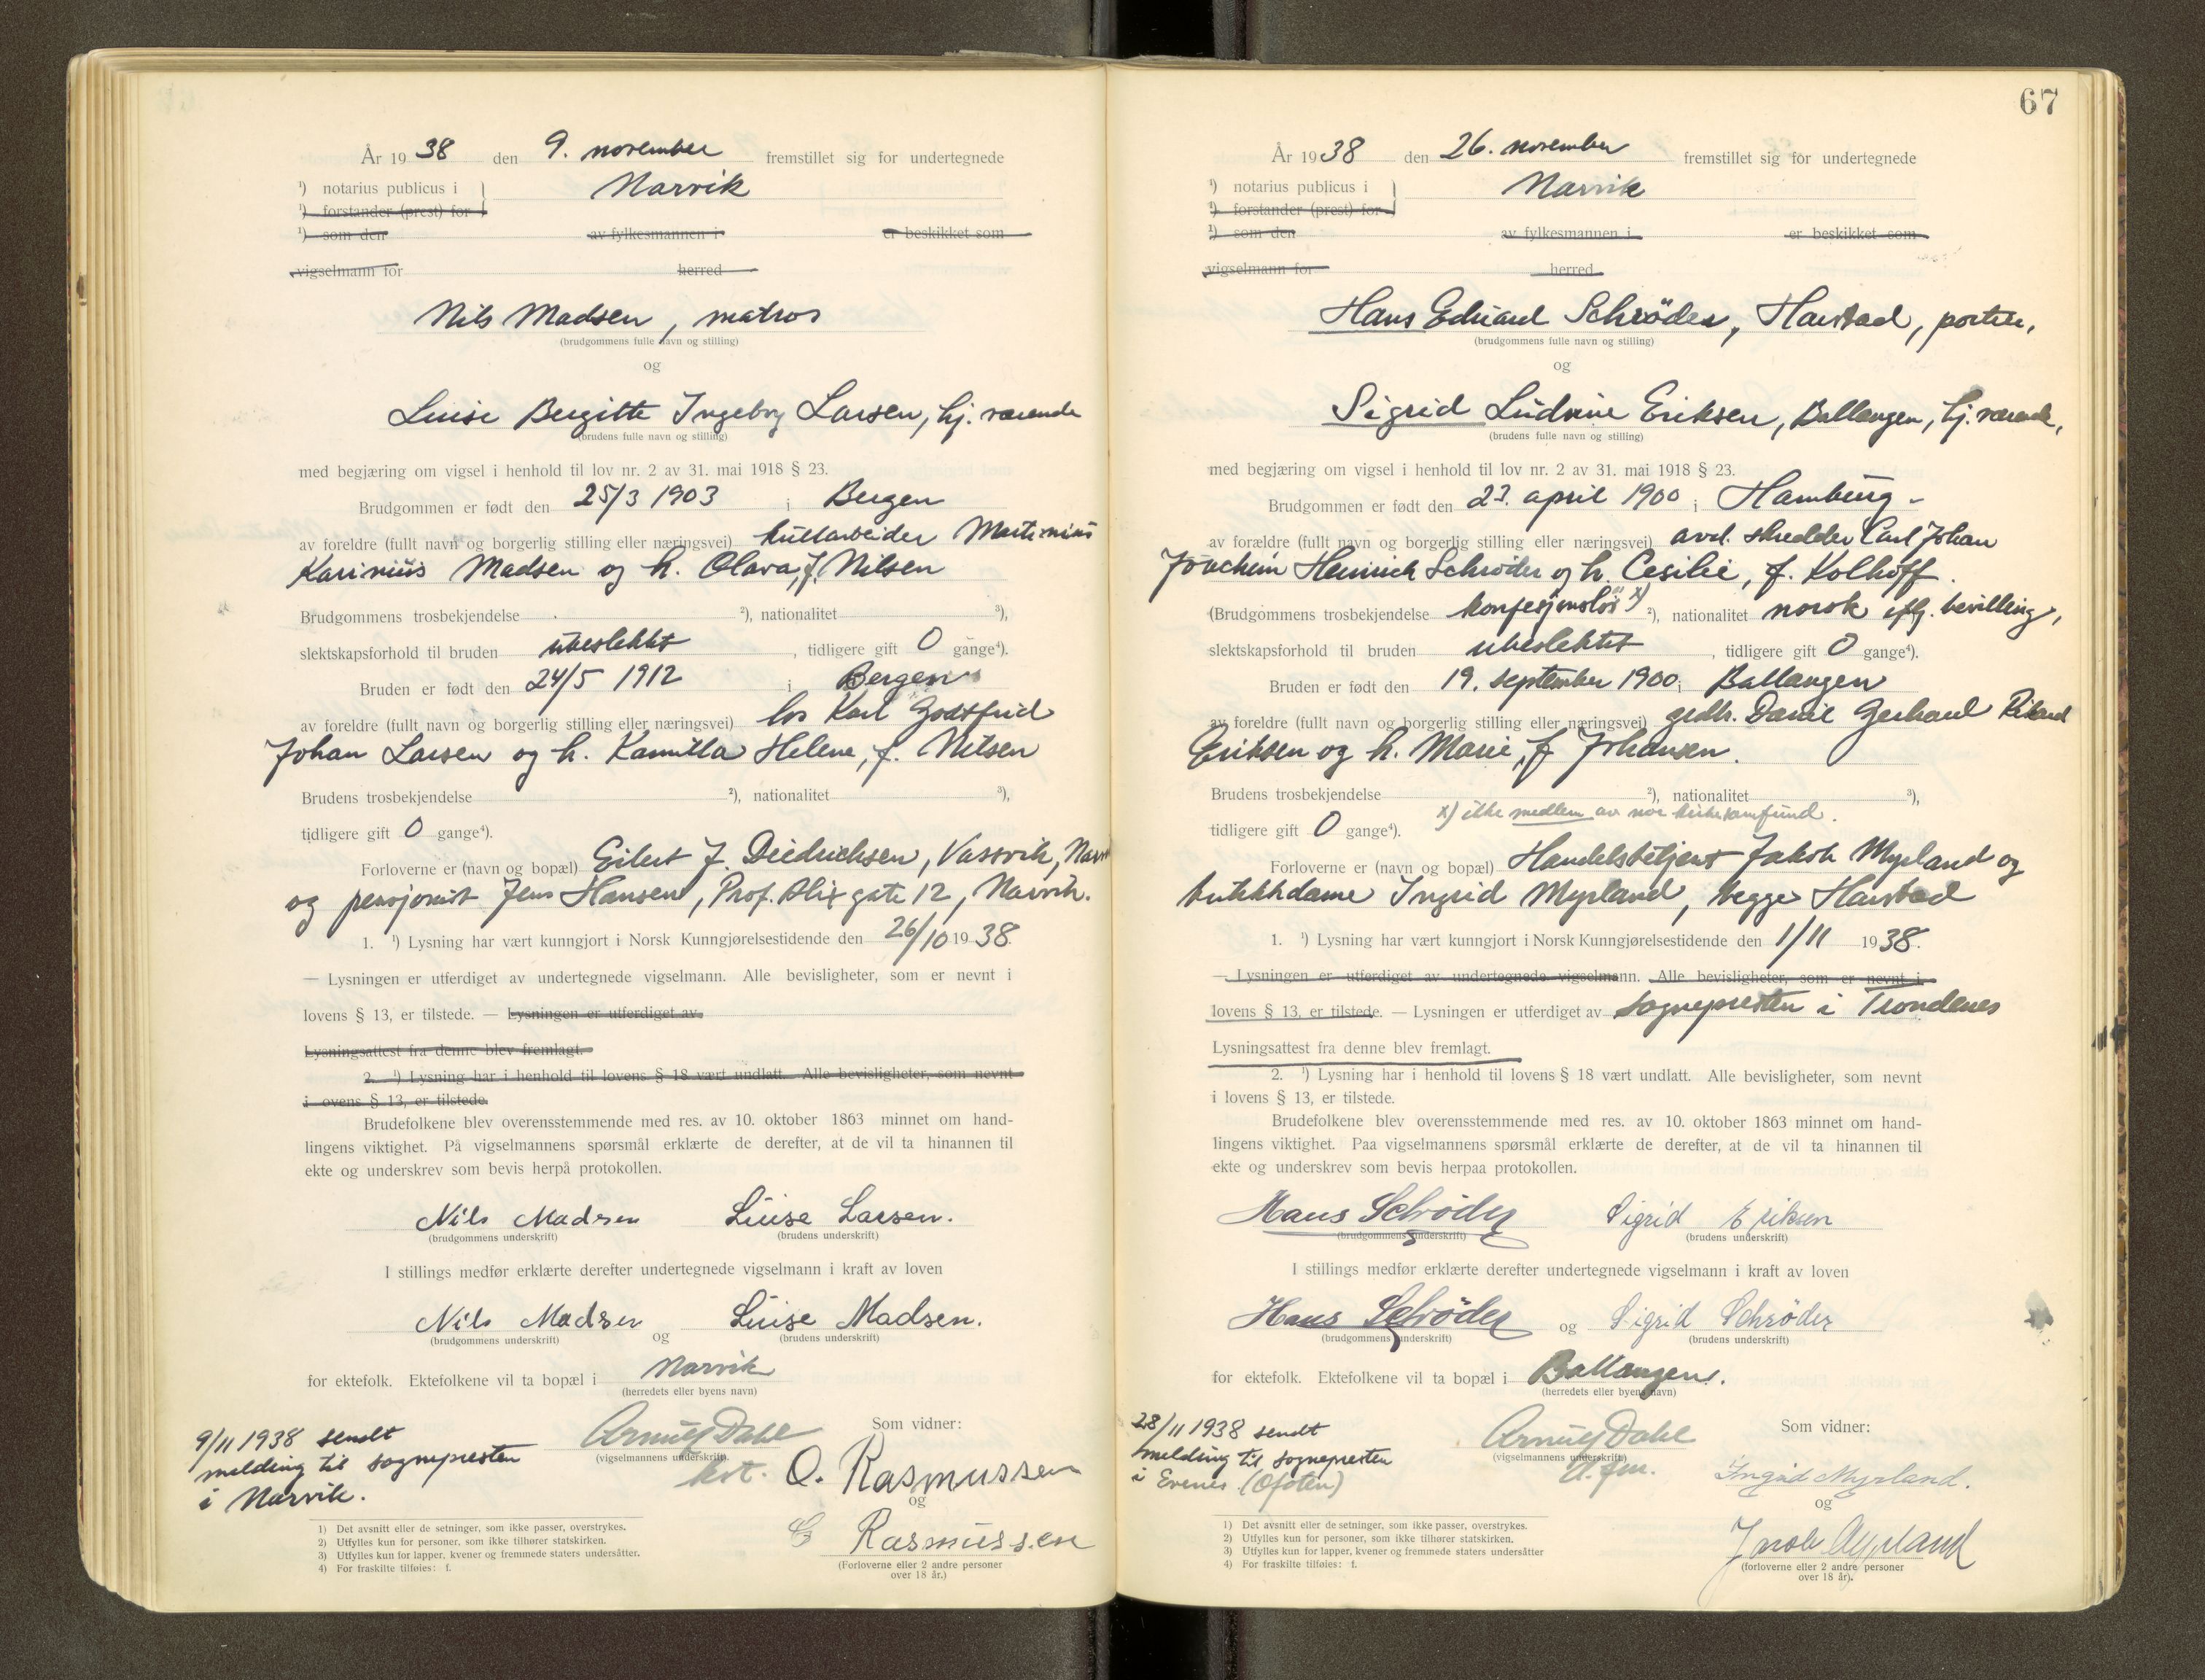 År 1938 den 9. november fremstillet sig for undertegnede
¹) notarius publicus i Narvik
¹) forstander (prest) for
¹) som den av fylkesmannen i er beskikket som
vigselmann for herred
Nils Madsen, matros
(brudgommens fulle navn og stilling)
og
Luise Bergitte Ingeborg Larsen, hj. værende
(brudens fulle navn og stilling)
med begjæring om vigsel i henhold til lov nr. 2 av 31. mai 1918 § 23.
Brudgommen er født den 25/3 1903 i Bergen
av foreldre (fullt navn og borgerlig stilling eller næringsvei) kullarbeider Martinius
Karinius Madsen og h. Olava, f. Nilsen
Brudgommens trosbekjendelse ²), nationalitet ³),
slektskapsforhold til bruden ubeslektet, tidligere gift 0 gange⁴).
Bruden er født den 24/5 1912 i Bergen
av foreldre (fullt navn og borgerlig stilling eller næringsvei) los Karl Godtfred
Johan Larsen og h. Kamilla Helene, f. Nilsen
Brudens trosbekjendelse ²), nationalitet ³),
tidligere gift 0 gange⁴).
Forloverne er (navn og bopæl) Eilert J. Diedrichsen, Vassvik,
og pensjonist Jens Hansen, Prof. Slix gate 12, Narvik.
1. ¹) Lysning har vært kunngjort i Norsk Kunngjørelsestidende den 26/10 1938.
— Lysningen er utferdiget av undertegnede vigselmann. Alle bevisligheter, som er nevnt i
lovens § 13, er tilstede. — Lysningen er utferdiget av
Lysningsattest fra denne blev fremlagt.
2. ¹) Lysning har i henhold til lovens § 18 vært undlatt. Alle bevisligheter, som nevnt
i ovens § 13, er tilstede.
Brudefolkene blev overensstemmende med res. av 10. oktober 1863 minnet om hand-
lingens viktighet. På vigselmannens spørsmål erklærte de derefter, at de vil ta hinannen til
ekte og underskrev som bevis herpå protokollen.
Nils Madsen Luise Larsen.
(brudgommens underskrift) (brudens underskrift)
I stillings medfør erklærte derefter undertegnede vigselmann i kraft av loven
Nils Madsen og Luise Madsen.
(brudgommens underskrift) (brudens underskrift)
for ektefolk. Ektefolkene vil ta bopæl i Narvik
(herredets eller byens navn)
9/11 1938 sendt
melding til sognepresten
i Narvik.
Arnulf Dahl
(vigselmannens underskrift).
kst.
Som vidner:
O. Rasmussen
og
Rasmussen
(Forloverne eller 2 andre personer
over 18 år.)
1) Det avsnitt eller de setninger, som ikke passer, overstrykes.
2) Utfylles kun for personer, som ikke tilhører statskirken.
3) Utfylles kun for lapper, kvener og fremmede staters undersåtter.
4) For fraskilte tilføies: f.
67
År 1938 den 26. november fremstillet sig for undertegnede
¹) notarius publicus i Narvik
¹) forstander (prest) for
¹) som den av fylkesmannen i er beskikket som
vigselmann for herred
Hans Eduard Schröder, Harstad, portier,
(brudgommens fulle navn og stilling)
og
Sigrid Ludvine Eriksen, Ballangen, hj. værende,
(brudens fulle navn og stilling)
med begjæring om vigsel i henhold til lov nr. 2 av 31. mai 1918 § 23.
Brudgommen er født den 23. april 1900 i Hamburg
av forældre (fullt navn og borgerlig stilling eller næringsvei) avd. skredder Carl Johan
Joachim Heinrich Schröder og h. Cesilie, f. Kolhoff.
(Brudgommens trosbekjendelse konfesjonsløs x) ²), nationalitet norsk iflg. bevilling, ³),
slektskapsforhold til bruden ubeslektet, tidligere gift 0 gange⁴).
Bruden er født den 19. september 1900 i Ballangen
av foreldre (fullt navn og borgerlig stilling eller næringsvei) grdbr. Gerhard Rikard
Eriksen og h. Marie, f. Johansen.
Brudens trosbekjendelse ²), nationalitet ³),
x) ikke medlem av nor kirkesamfund.
tidligere gift 0 gange⁴).
Forloverne er (navn og bopæl) Handelsbetjent Jakob Myrland og
butikkdame Ingrid Myrland, begge Harstad
1. ¹) Lysning har vært kunngjort i Norsk Kunngjørelsestidende den 1/11 1938.
— Lysningen er utferdiget av undertegnede vigselmann. Alle bevisligheter, som er nevnt i
lovens § 13, er tilstede. — Lysningen er utferdiget av sognepresten i Trondenes
Lysningsattest fra denne blev fremlagt.
2. ¹) Lysning har i henhold til lovens § 18 vært undlatt. Alle bevisligheter, som nevnt
i lovens § 13, er tilstede.
Brudefolkene blev overensstemmende med res. av 10. oktober 1863 minnet om hand-
lingens viktighet. Paa vigselmannens spørsmål erklærte de derefter, at de vil ta hinannen til
ekte og underskrev som bevis herpaa protokollen.
Hans Schröder Sigrid Eriksen
(brudgommens underskrift) (brudens underskrift)
I stillings medfør erklærte derefter undertegnede vigselmann i kraft av loven
Hans Schröder og Sigrid Schrøder
(brudgommens underskrift) (brudens underskrift)
for ektefolk. Ektefolkene vil ta bopæl i Ballangen.
(herredets eller byens navn)
28/11 1938 sendt
melding til sognepresten
i Evenes (Ofoten)
Arnulf Dahl
(vigselmannens underskrift).
Som vidner:
Ingrid Myrland.
og
Jakob Myrland
(forloverne eller 2 andre personer
over 18 år).
1) Det avsnitt eller de setninger, som ikke passer, overstrykes.
2) Utfylles kun for personer, som ikke tilhører statskirken.
3) Utfylles kun for lapper, kvener og fremmede staters undersåtter
4) For fraskilte tilføies: f.